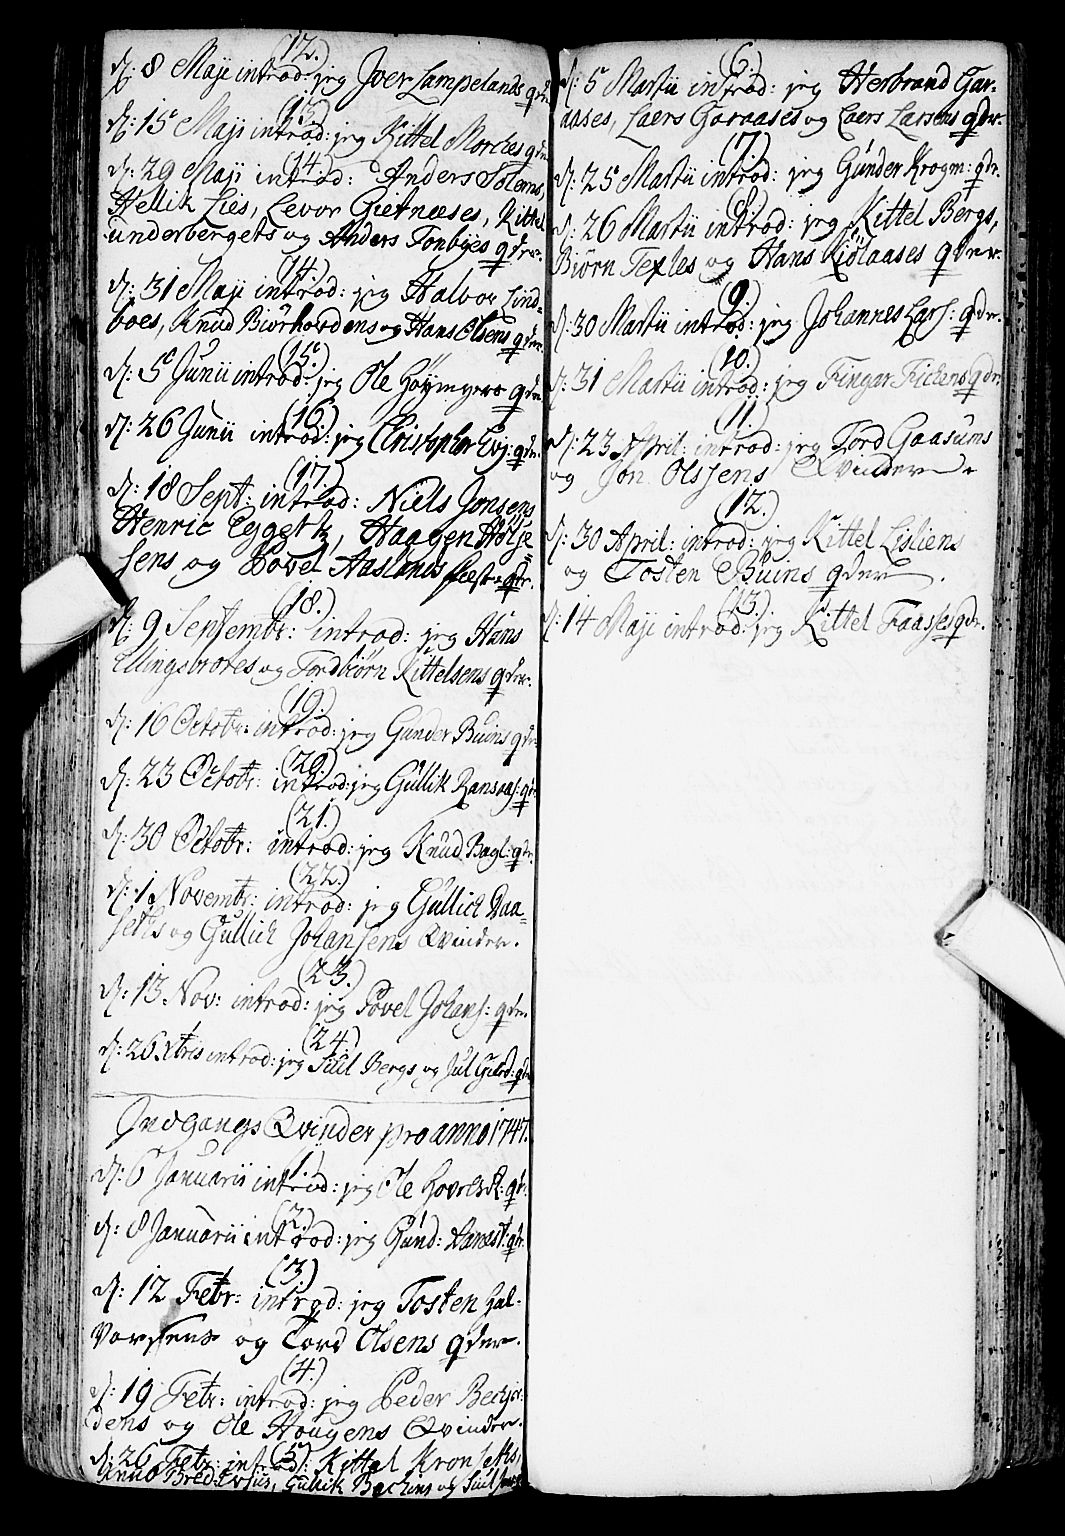 (12.)
d: 8 Maji introd: jeg Iver Lampelands qdr.
(13.)
d: 15 Maji introd: jeg Kittel Morches qdr.
(14.)
d: 29 Maji introd: Anders Solems,
Hellik Lies, Levor Gietnæses, Kittel
underbergets og Anders Fonbyes qder.
(14.)
d: 31 Maji introd: jeg Halvor Lind-
boes, Knud Biørhovdens og Hans Olsens qder.
(15.)
d: 5 Junii introd: jeg Ole Høymyers qdr.
(16.)
d: 26 Junii introd: jeg Christopher Evj: qdr.
(17.)
d: 18 Sept: introd: Niels Jonsens
Henric Eggertz, Haagen Holje-
sens og Povel Aaslands qdr.
(18.)
d: 9 Septembr: introd: jeg Hans
Ellingsbrotes og Tordbiørn Kittelsens qder.
(19.)
d: 16 Octobr: introd: jeg Gunder Buins qdr.
(20.)
d: 23 Octobr: introd: jeg Gullik Ransaas: qdr.
(21.)
d: 30 Octobr: introd: jeg Knud Bagl: qdr.
(22.)
d: 1 Novembr: introd: jeg Gullich Daa-
seths og Gullich Johansens Qvinder.
(23.)
d: 13 Nov: introd: jeg Povel Johans: qdr.
(24.)
d: 26 Xbris introd: jeg Siul Bergs og Jul Gulv: qdr
Indgangs Qvinder pro anno 1747.
1.)
d: 6 Januarii introd: jeg Ole qdr.
(2.)
d: 8 Januarii introd: jeg Gund: qdr.
(3.)
d: 12 Febr: introd: jeg Tosten Hal-
vorsens og Tord Olsens qder.
(4.)
d: 19 Febr: introd: jeg Peder
dens og Ole Hougens Qvinder.
(5)
d: 26 Febr: introd: Kittel Kronseths,
Gullik Bechens og Siul
(6.)
d: 5 Martii introd: jeg Herbrand Gar-
aases, Laers Garaases og Laers Larsens qdr.
(7.)
d: 25 Martii introd: jeg Gunder Krogm: qdr.
(8.)
d: 26 Martii introd: jeg Kittel Bergs,
Biørn Texles og Hans Kidlaases qder.
(9.)
d: 30 Martii introd: jeg Johannes Lars: qdr.
(10.)
d: 31 Martii introd: jeg Fingar Fickens qdr.
(11.)
d: 23 April: introd: jeg Tord Gaasums
og Jon Olssens Qvinder
(12.)
d: 30 April: introd: jeg Kittel Lisliens
og Tosten Buins qder.
(13.)
d: 14 Maji introd: jeg Kittel Faases qdr.